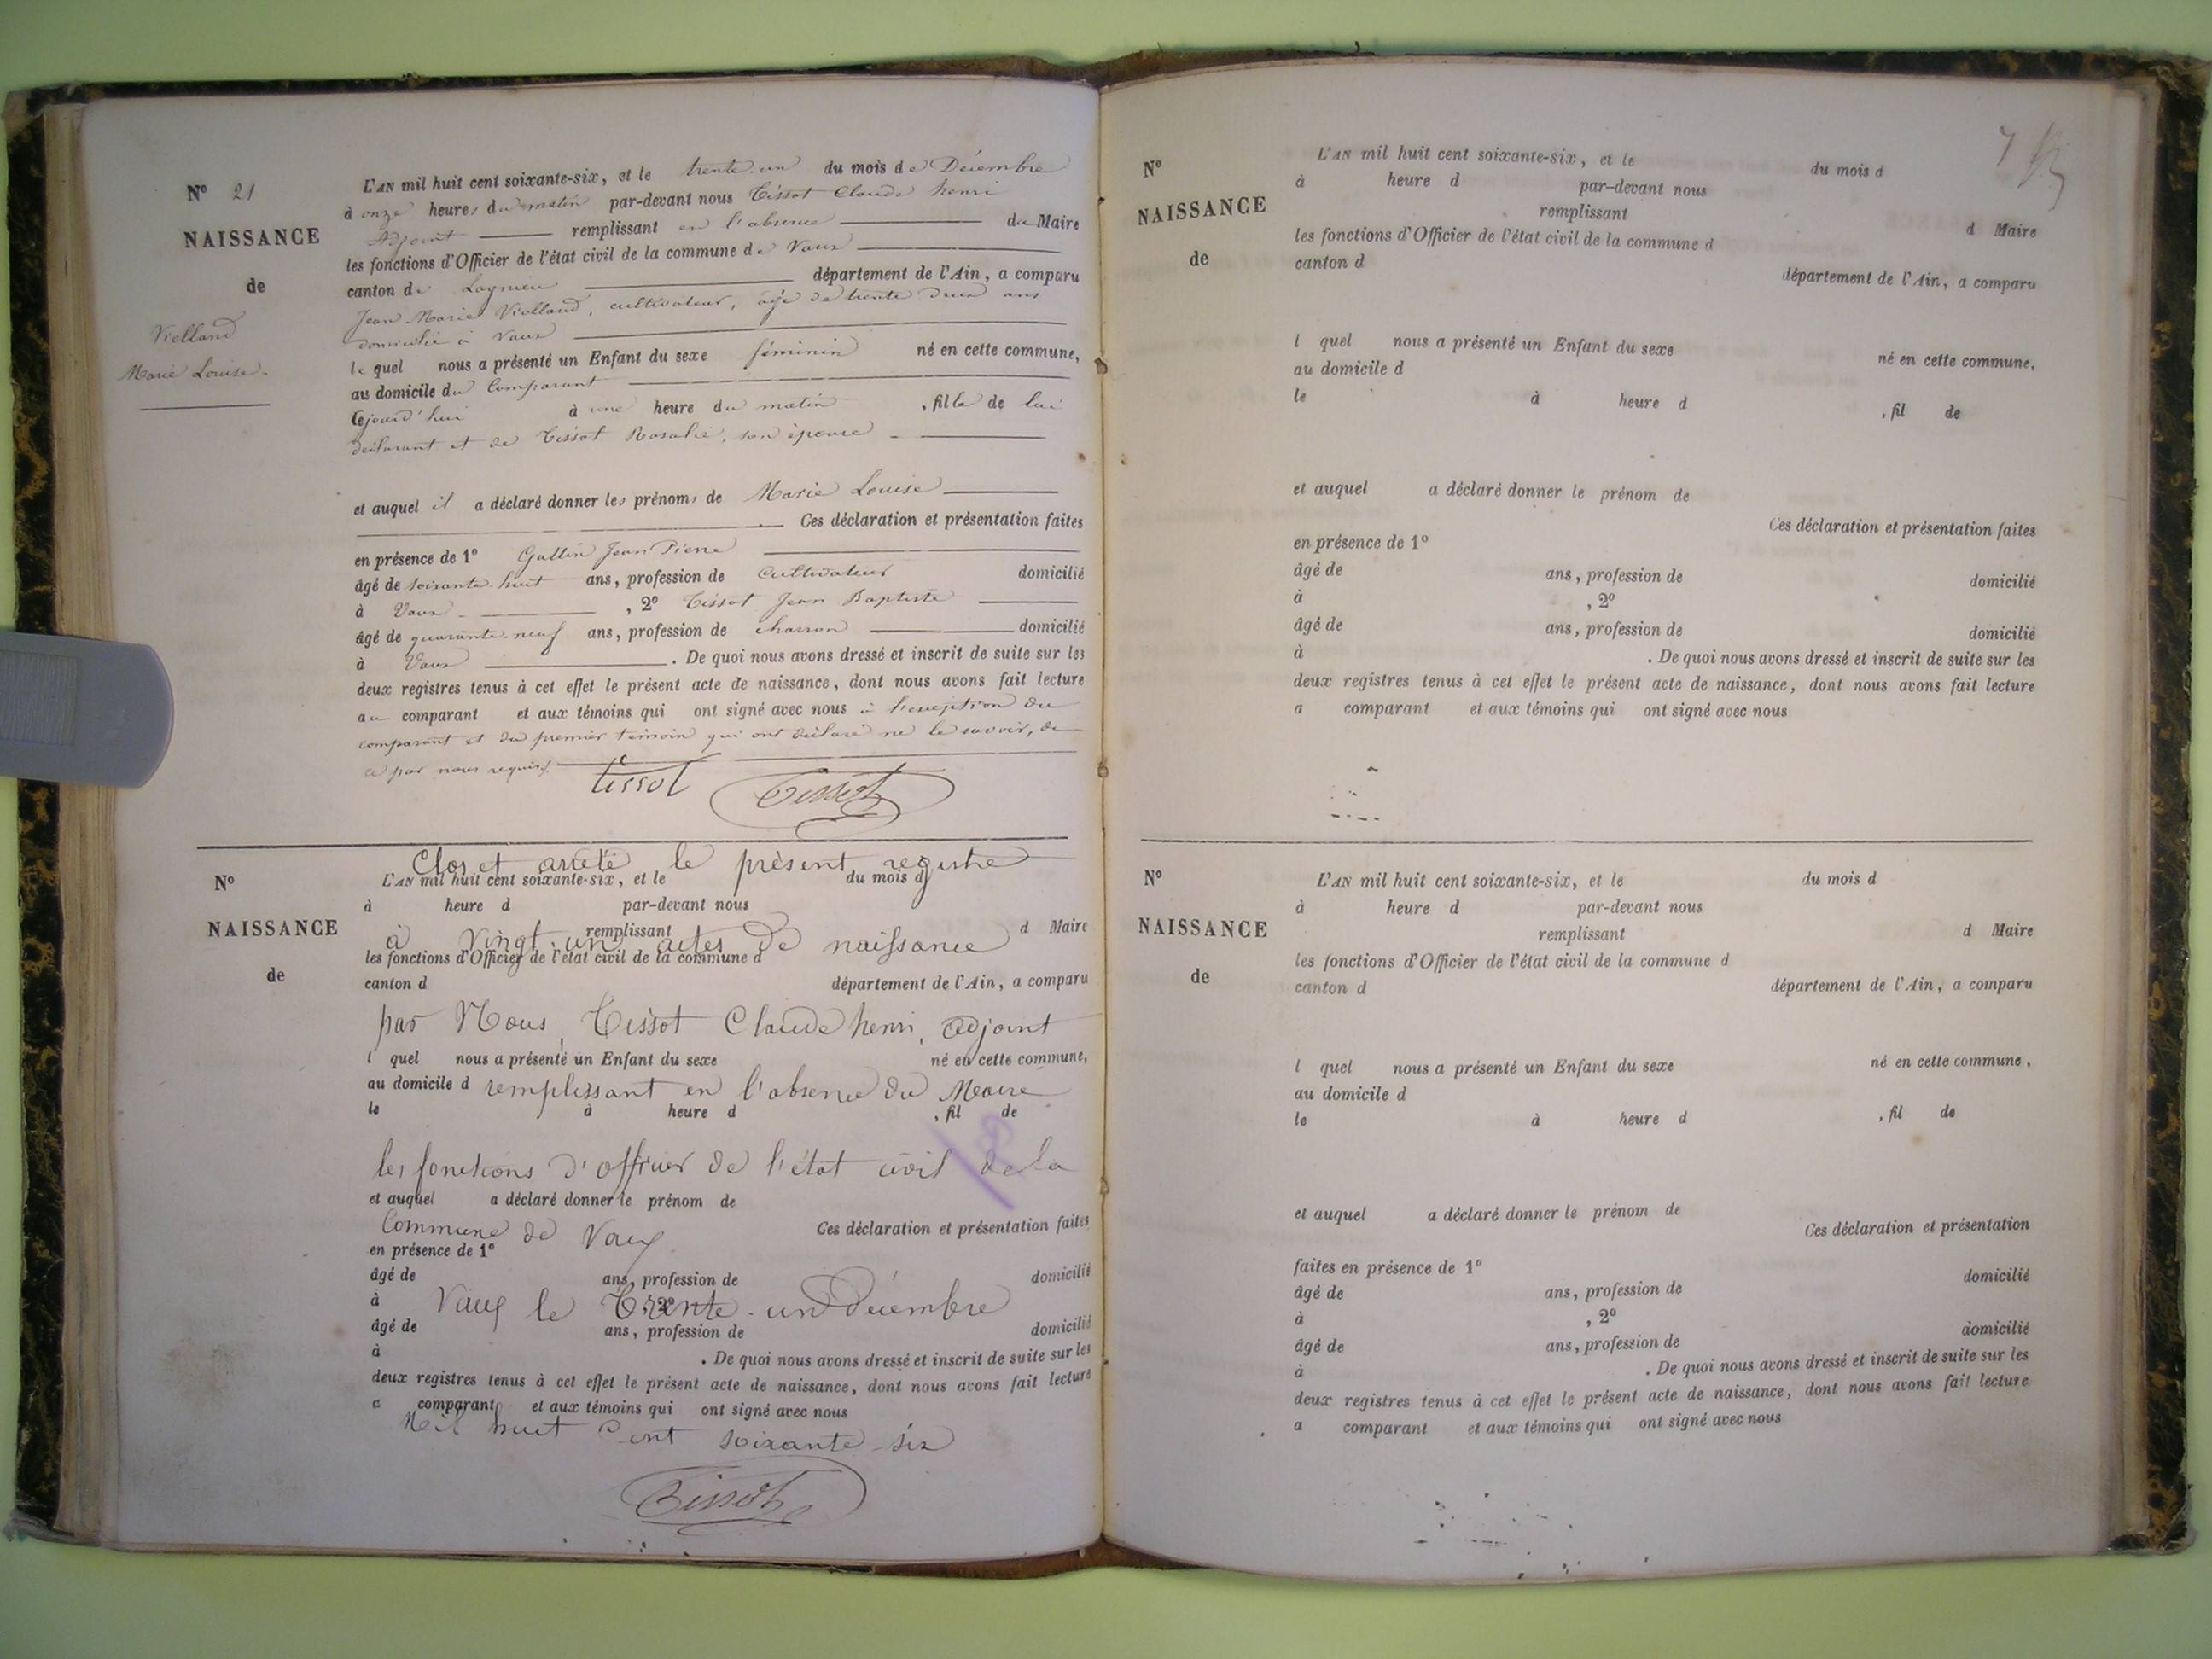 N° 21
NAISSANCE
de
Violland
Marie Louise.
L'AN mil huit cent soixante-six, et le trente-un du mois de Décembre
à onze heures du matin par-devant nous Tissot Claude henri
Adjoint remplissant en l'absence du Maire
les fonctions d'Officier de l'état civil de la commune de Vaux
canton de Lagnieu département de l'Ain, a comparu
Jean Marie Violland, cultivateur, âgé de trente deux ans
domicilié à Vaux
lequel nous a présenté un Enfant du sexe féminin né en cette commune,
au domicile du Comparant
Cejourd'hui à une heure du matin, fille de lui
déclarant et de Tissot Rosalie, son épouse
et auquel il a déclaré donner les prénoms de Marie Louise
Ces déclaration et présentation faites
en présence de 1° Jean Pierre
âgé de soixante-huit ans, profession de Cultivateur domicilié
à Vaux, 2° Tissot Jean Baptiste
âgé de quarante-neuf ans, profession de charron domicilié
à Vaux. De quoi nous avons dressé et inscrit de suite sur les
deux registres tenus à cet effet le présent acte de naissance, dont nous avons fait lecture
au comparant et aux témoins qui ont signé avec nous à l'exception du
comparant et du premier témoin qui ont déclaré ne le savoir, de
ce par nous requis.
tissot Tissot
Clos et arrêté le présent registre
N° L'AN mil huit cent soixante-six, et le du mois d
à heure d par-devant nous
NAISSANCE remplissant d Maire
à Vingt-un actes de naissance
les fonctions d'Officier de l'état civil de la commune d
de canton d département de l'Ain, a comparu
par Nous, Tissot Claude henri, adjoint
l quel nous a présenté un Enfant du sexe né en cette commune,
au domicile d remplissant en l'absence du Maire
le à heure d, fil de
les fonctions d'officier de l'état civil de la
et auquel a déclaré donner le prénom de
Commune de Vaux Ces déclaration et présentation faites
en présence de 1°
âgé de ans, profession de domicilié
à Vaux le Trente-un Décembre 2°
âgé de ans, profession de domicilié
à . De quoi nous avons dressé et inscrit de suite sur les
deux registres tenus à cet effet le présent acte de naissance, dont nous avons fait lecture
a comparant et aux témoins qui ont signé avec nous
Mil huit Cent soixante-six
Tissot
N°
NAISSANCE
de
L'AN mil huit cent soixante-six, et le du mois d
à heure d par-devant nous
remplissant d Maire
les fonctions d'Officier de l'état civil de la commune d
canton d département de l'Ain, a comparu
l quel nous a présenté un Enfant du sexe né en cette commune,
au domicile d
le à heure d, fil de
et auquel a déclaré donner le prénom de
Ces déclaration et présentation faites
en présence de 1°
âgé de ans, profession de domicilié
à , 2°
âgé de ans, profession de domicilié
à . De quoi nous avons dressé et inscrit de suite sur les
deux registres tenus à cet effet le présent acte de naissance, dont nous avons fait lecture
a comparant et aux témoins qui ont signé avec nous
N°
NAISSANCE
de
L'AN mil huit cent soixante-six, et le du mois d
à heure d par-devant nous
remplissant d Maire
les fonctions d'Officier de l'état civil de la commune d
canton d département de l'Ain, a comparu
l quel nous a présenté un Enfant du sexe né en cette commune,
au domicile d
le à heure d, fil de
et auquel a déclaré donner le prénom de
Ces déclaration et présentation
faites en présence de 1°
âgé de ans, profession de domicilié
à , 2°
âgé de ans, profession de domicilié
à . De quoi nous avons dressé et inscrit de suite sur les
deux registres tenus à cet effet le présent acte de naissance, dont nous avons fait lecture
a comparant et aux témoins qui ont signé avec nous